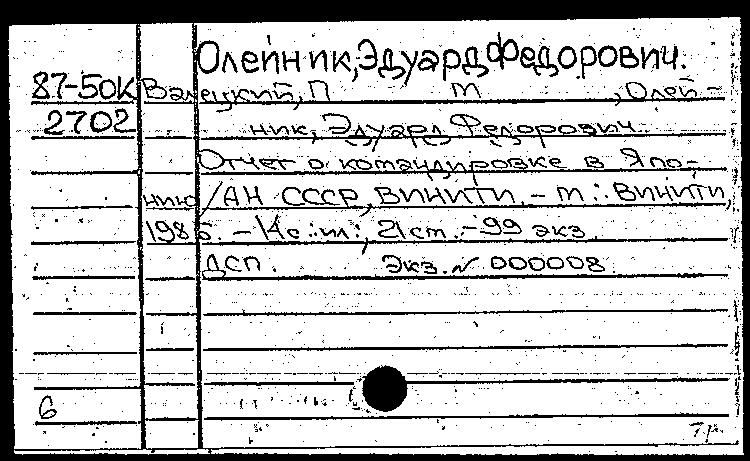 Олейник, Эдуард Федорович.
87-50К Валецкий, П М , Олей-
2702 ник, Эдуард Федорович.
Отчет о командировке в Япо-
нию / АН СССР, ВИНИТИ. - М.: ВИНИТИ,
1986. - 14с.: ил.; 21см. - 99 экз.
ДСП. Экз. № 000008.
6